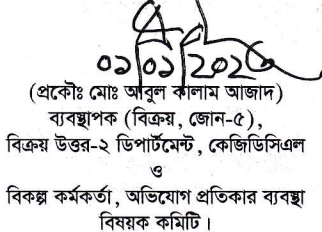 ০১/০১/২০২৩
(প্রকৌঃ মোঃ আবুল কালাম আজাদ)
ব্যবস্থাপক (বিক্রয়, জোন-৫),
বিক্রয় উত্তর-২ ডিপার্টমেন্ট, কেজিডিসিএল
ও
বিকল্প কর্মকর্তা, অভিযোগ প্রতিকার ব্যবস্থা
বিষয়ক কমিটি।